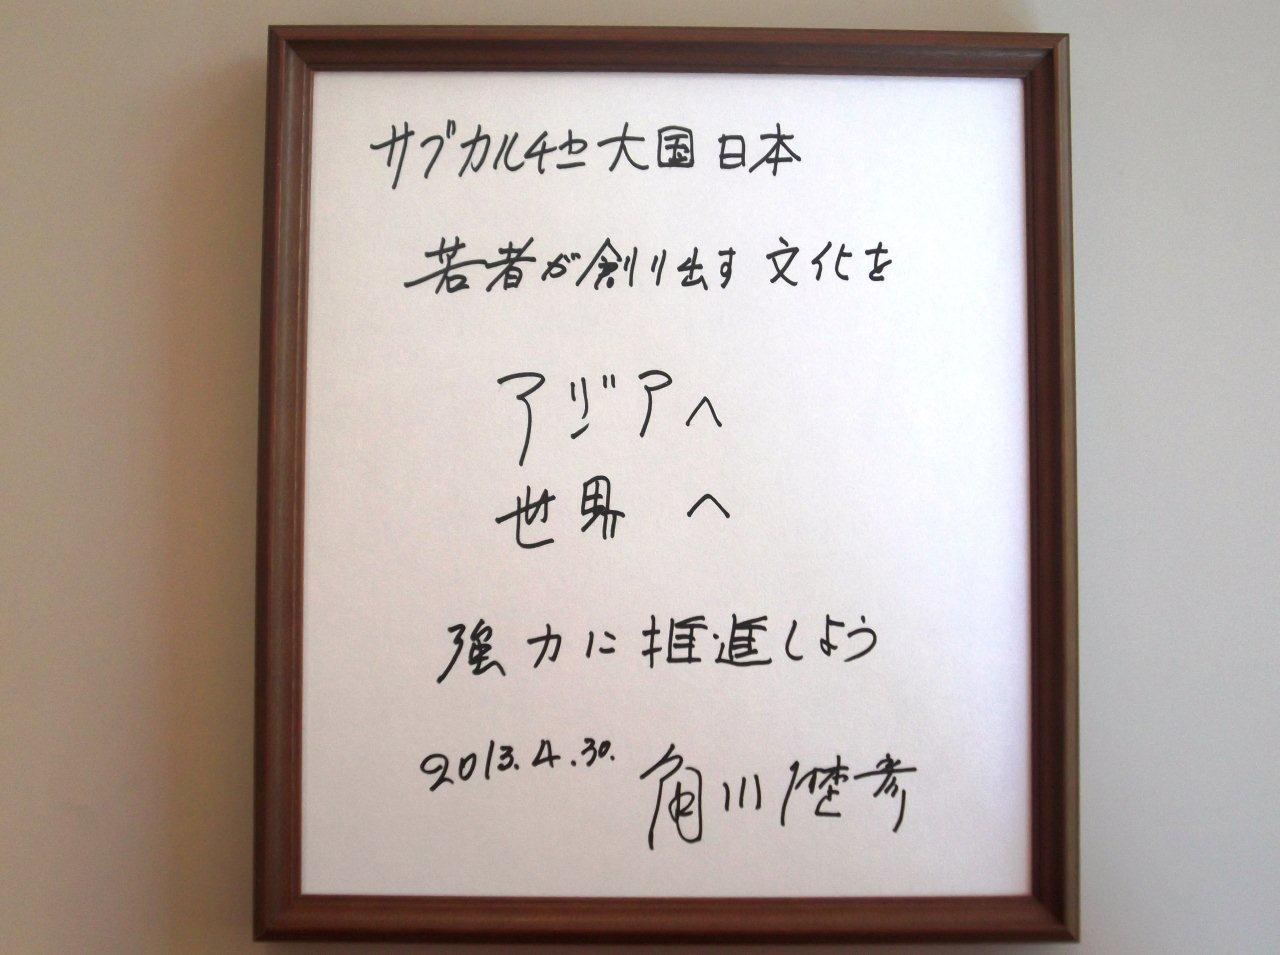 サブカルチャー大国日本
若者が創り出す文化を
アジアへ
世界へ
強力に推進しよう
2013.4.30. 角川歴彦